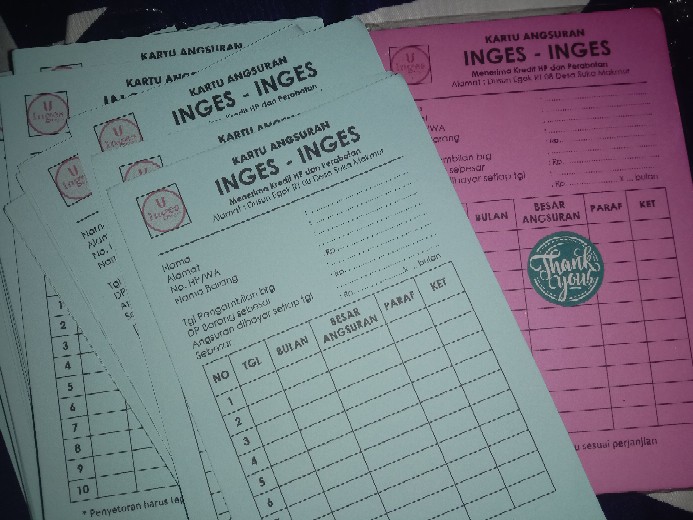 KARTU ANGSURAN
KARTU ANGSURAN
KARTU ANGSURAN
INGES - INGES
Kredit HP dan Perabotan
KARTU ANGSURAN
U
Inges
KARTU ANGSURAN
INGES - INGES
Menerima Kredit HP dan Perabotan
Alamat : Dusun Egok Rt 08 Desa Suka Makmur
Nama
Alamat
No. HP/WA
Nama Barang
Tgl Pengambilan brg
DP Barang sebesar : Rp.
Angsuran dibayar setiap tgl
Sebesar : Rp. X ... bulan
NO TGL BULAN BESAR ANGSURAN PARAF KET
1
2
3
4
5
6
1
2
3
4
5
6
7
8
9
10
* Penyetoran harus
KARTU ANGSURAN
INGES - INGES
Menerima Kredit HP dan Perabotan
Alamat : Dusun Egok Rt 08 Desa Suka Makmur
/WA
Barang
brg : Rp.
sebesar
dibayar setiap tgl : Rp. X ... bulan
BULAN BESAR ANGSURAN PARAF KET
Thank you
sesuai perjanjian